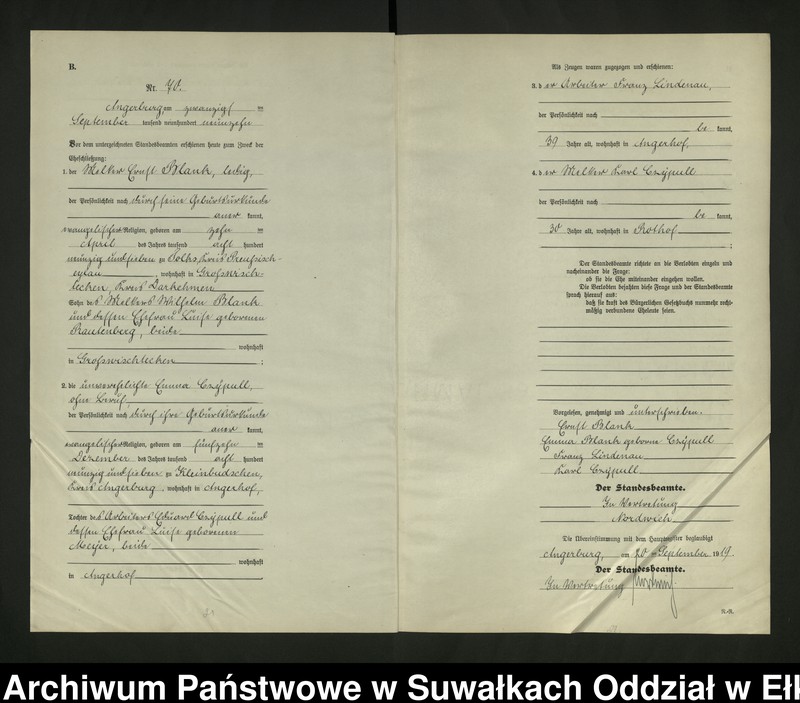 B.
Nr. 70.
Angerburg, am zwanzigsten
September tausend neunhundert neunzehn
Vor dem unterzeichneten Standesbeamten erschienen heute zum Zweck der
Eheschließung:
1. der Melker Ernst Blank, ledig,
der Persönlichkeit nach durch seine Geburtsurkunde
anerkannt,
evangelischer Religion, geboren am zehn ten
April des Jahres tausend acht hundert
neunzig und sieben zu Kreis Preußisch-
eylau, wohnhaft in Großwisch-
lecken, Kreis Darkehmen
Sohn des Melkers Wilhelm Blank
und dessen Ehefrau Luise geborenen
Rautenberg, beide
wohnhaft
in Groswischlecken;
2. die unverehelichte Emma Czypull,
ohne Beruf,
der Persönlichkeit nach durch ihre Geburtsurkunde
anerkannt,
evangelischer Religion, geboren am fünfzehn ten
Dezember des Jahres tausend acht hundert
neunzig und sieben zu Kleinbudschen,
Kreis Angerburg, wohnhaft in Angerhof,
Tochter des Arbeiters Eduard Czypull und
dessen Ehefrau Luise geborenen
Meyer, beide
wohnhaft
in Angerhof
Als Zeugen waren zugezogen und erschienen:
3. der Arbeiter Franz Lindenau,
der Persönlichkeit nach
bekannt,
39 Jahre alt, wohnhaft in Angerhof,
4. der Melker Karl Czypull
der Persönlichkeit nach
bekannt,
30 Jahre alt, wohnhaft in Rothof
;
Der Standesbeamte richtete an die Verlobten einzeln und
nacheinander die Frage:
ob sie die Ehe miteinander eingehen wollen.
Die Verlobten bejahten diese Frage und der Standesbeamte
sprach hierauf aus:
daß sie kraft des Bürgerlichen Gesetzbuchs nunmehr recht-
mäßig verbundene Eheleute seien.
Vorgelesen, genehmigt und unterschrieben.
Ernst Blank
Emma Blank geborne Czypull
Franz Lindenau
Karl Czypull
Der Standesbeamte.
In Vertretung
Nordwich
Die Übereinstimmung mit dem Hauptregister beglaubigt
Angerburg, am 20 ten September 1919.
Der Standesbeamte.
In Vertretung
Archiwum Państwowe w Suwałkach Oddział w Ełk